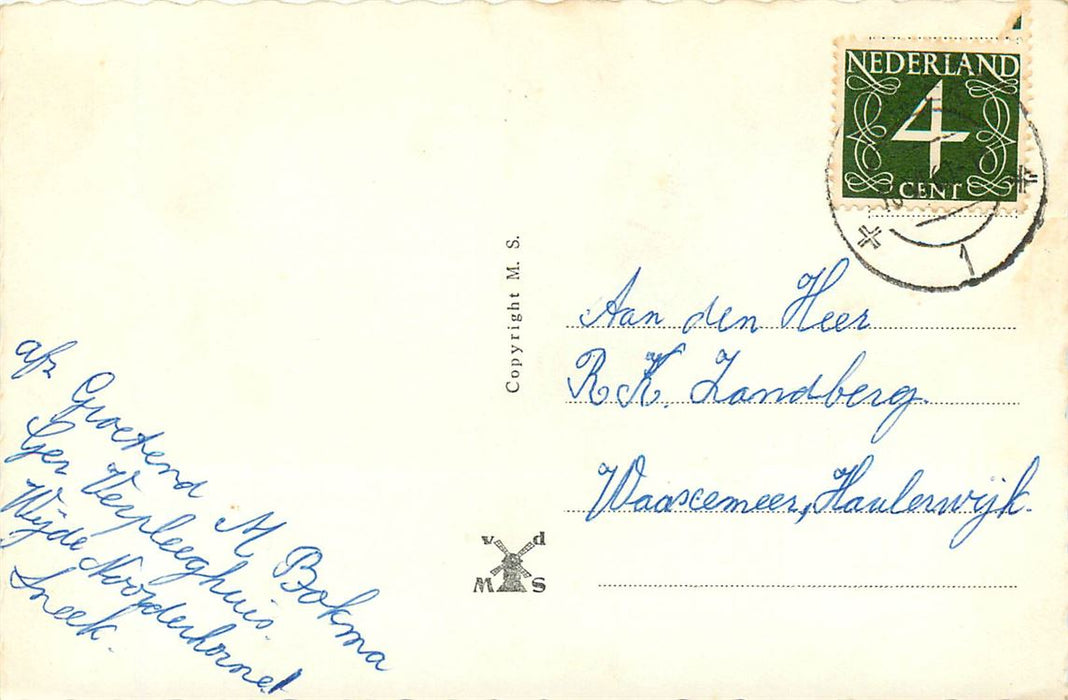 NEDERLAND
4
CENT
1
Copyright M. S.
Aan den Heer
R. K. Zandberg.
Waascemeer, Haulerwijk.
afz Groetend M. Bokma
Ger Verpleeghuis.
Wijde Noorderhorne
Sneek.
v d
M S